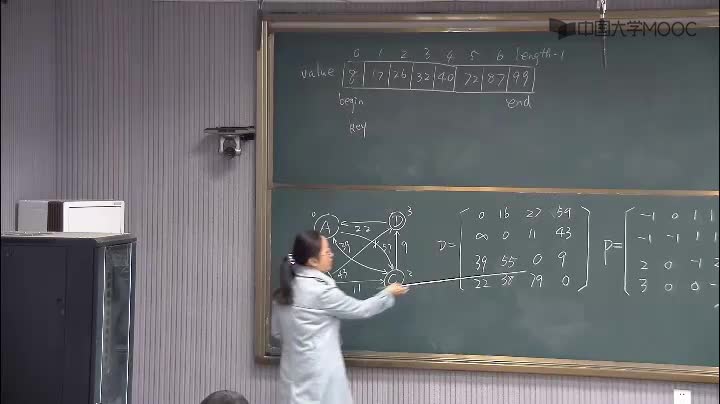 中国大学MOOC
0 1 2 3 4 5 6 length-1
value 8 17 26 32 40 72 87 99
begin end
key
0 A D 3
22
29 57 9
43 C 2
11
D= 0 16 27 59
∞ 0 11 43
39 55 0 9
22 38 79 0
P= -1 0 1 1
-1 -1 1
2 0 -1 2
3 0 0 -